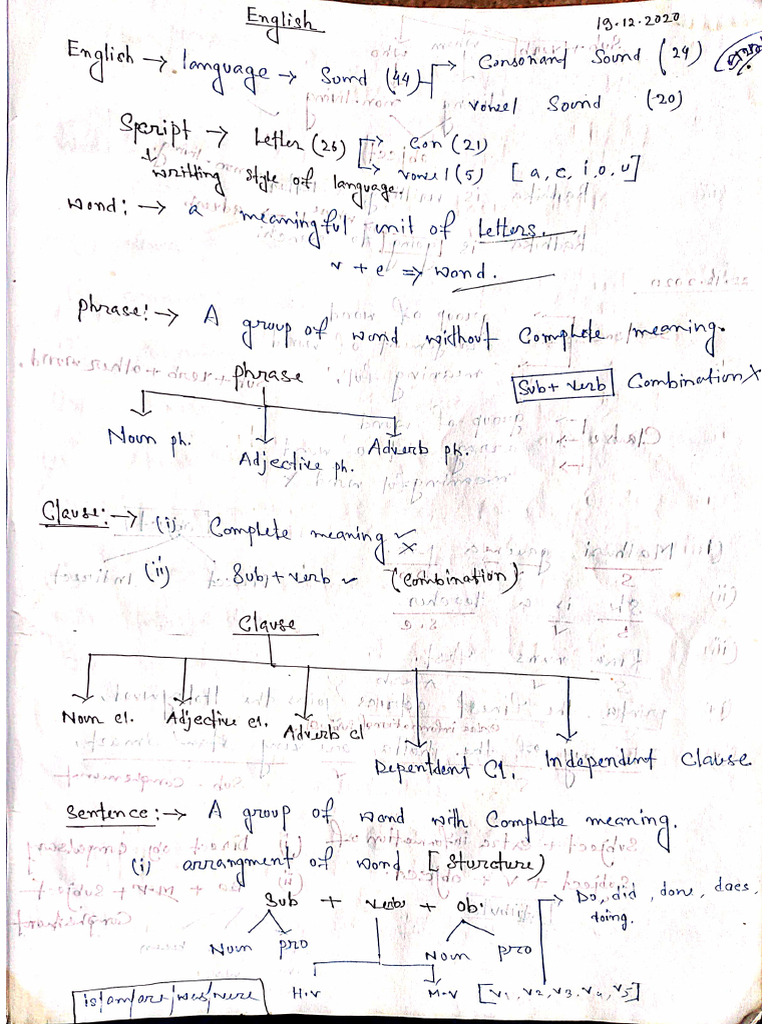 English
19.12.2020
English → language → Sound (44) → Consonant Sound (24)
vowel Sound (20)
Script → Letter (26) → Con (21)
→ vowel (5) [a, e, i, o, u]
writting style of language.
word: → a meaningful unit of Letters.
v + e ⇒ word.
phrase: → A group of word without Complete meaning.
phrase
Sub + verb Combination X
Noun ph.
Adjective ph.
Adverb ph.
Clause: → (i) Complete meaning ✓ X
(ii) Sub, + verb ✓ (Combination)
Clause
Noun cl.
Adjective cl.
Adverb cl
Depentdent Cl.
Independent Clause.
Sentence: → A group of word with Complete meaning.
(i) arrangment of word [Sturcture)
Sub + verbs + Ob.
→ Do, did, done, daes, doing.
Noun pro
Noun pro
is/am/are/was/were
H.V
M.V [v1, v2, v3, v4, v5]